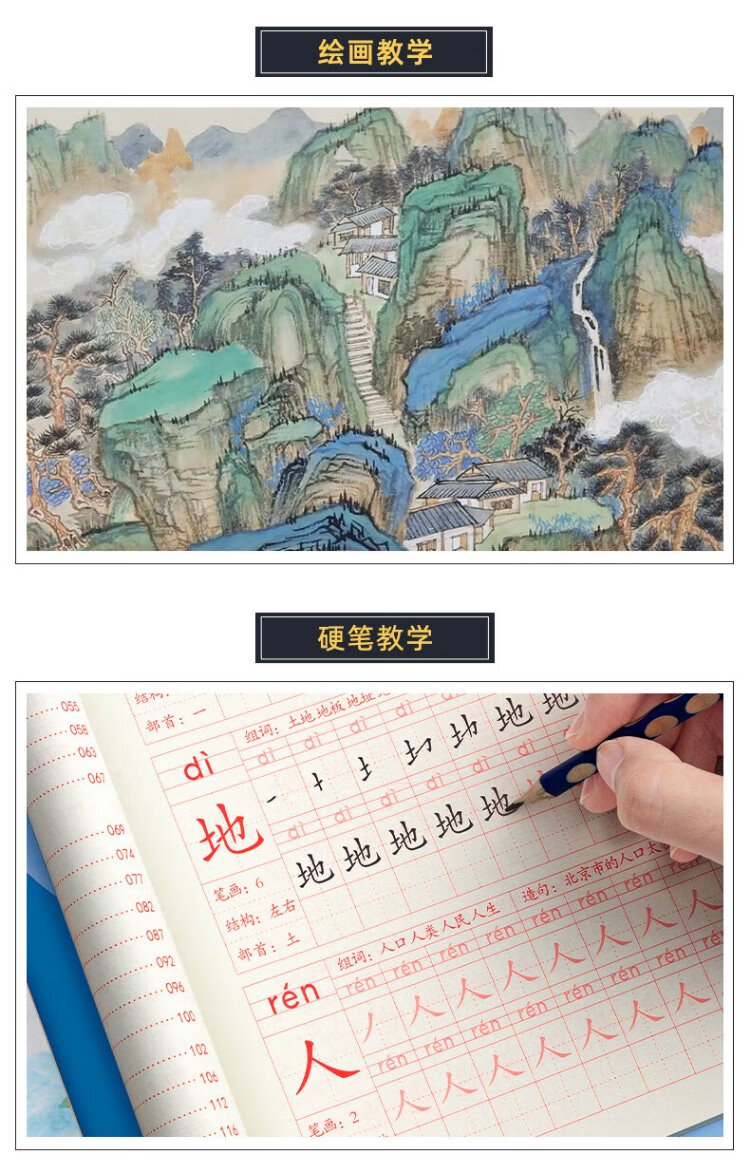 绘画教学
硬笔教学
055
058
063
067
069
074
077
082
087
092
096
100
102
106
112
116
部首：一
dì
组词：土地 地板 地址
dì dì dì dì dì
地
地 地
dì dì dì dì dì dì
地 地 地 地 地
笔画：6
结构：左右
部首：土
rén
组词：人口 人类 人民 人生
造句：北京市的人口太
rén rén rén rén rén rén rén rén
人
人 人 人 人 人 人 人
rén rén rén rén rén rén rén rén
人 人 人 人 人 人 人
笔画：2